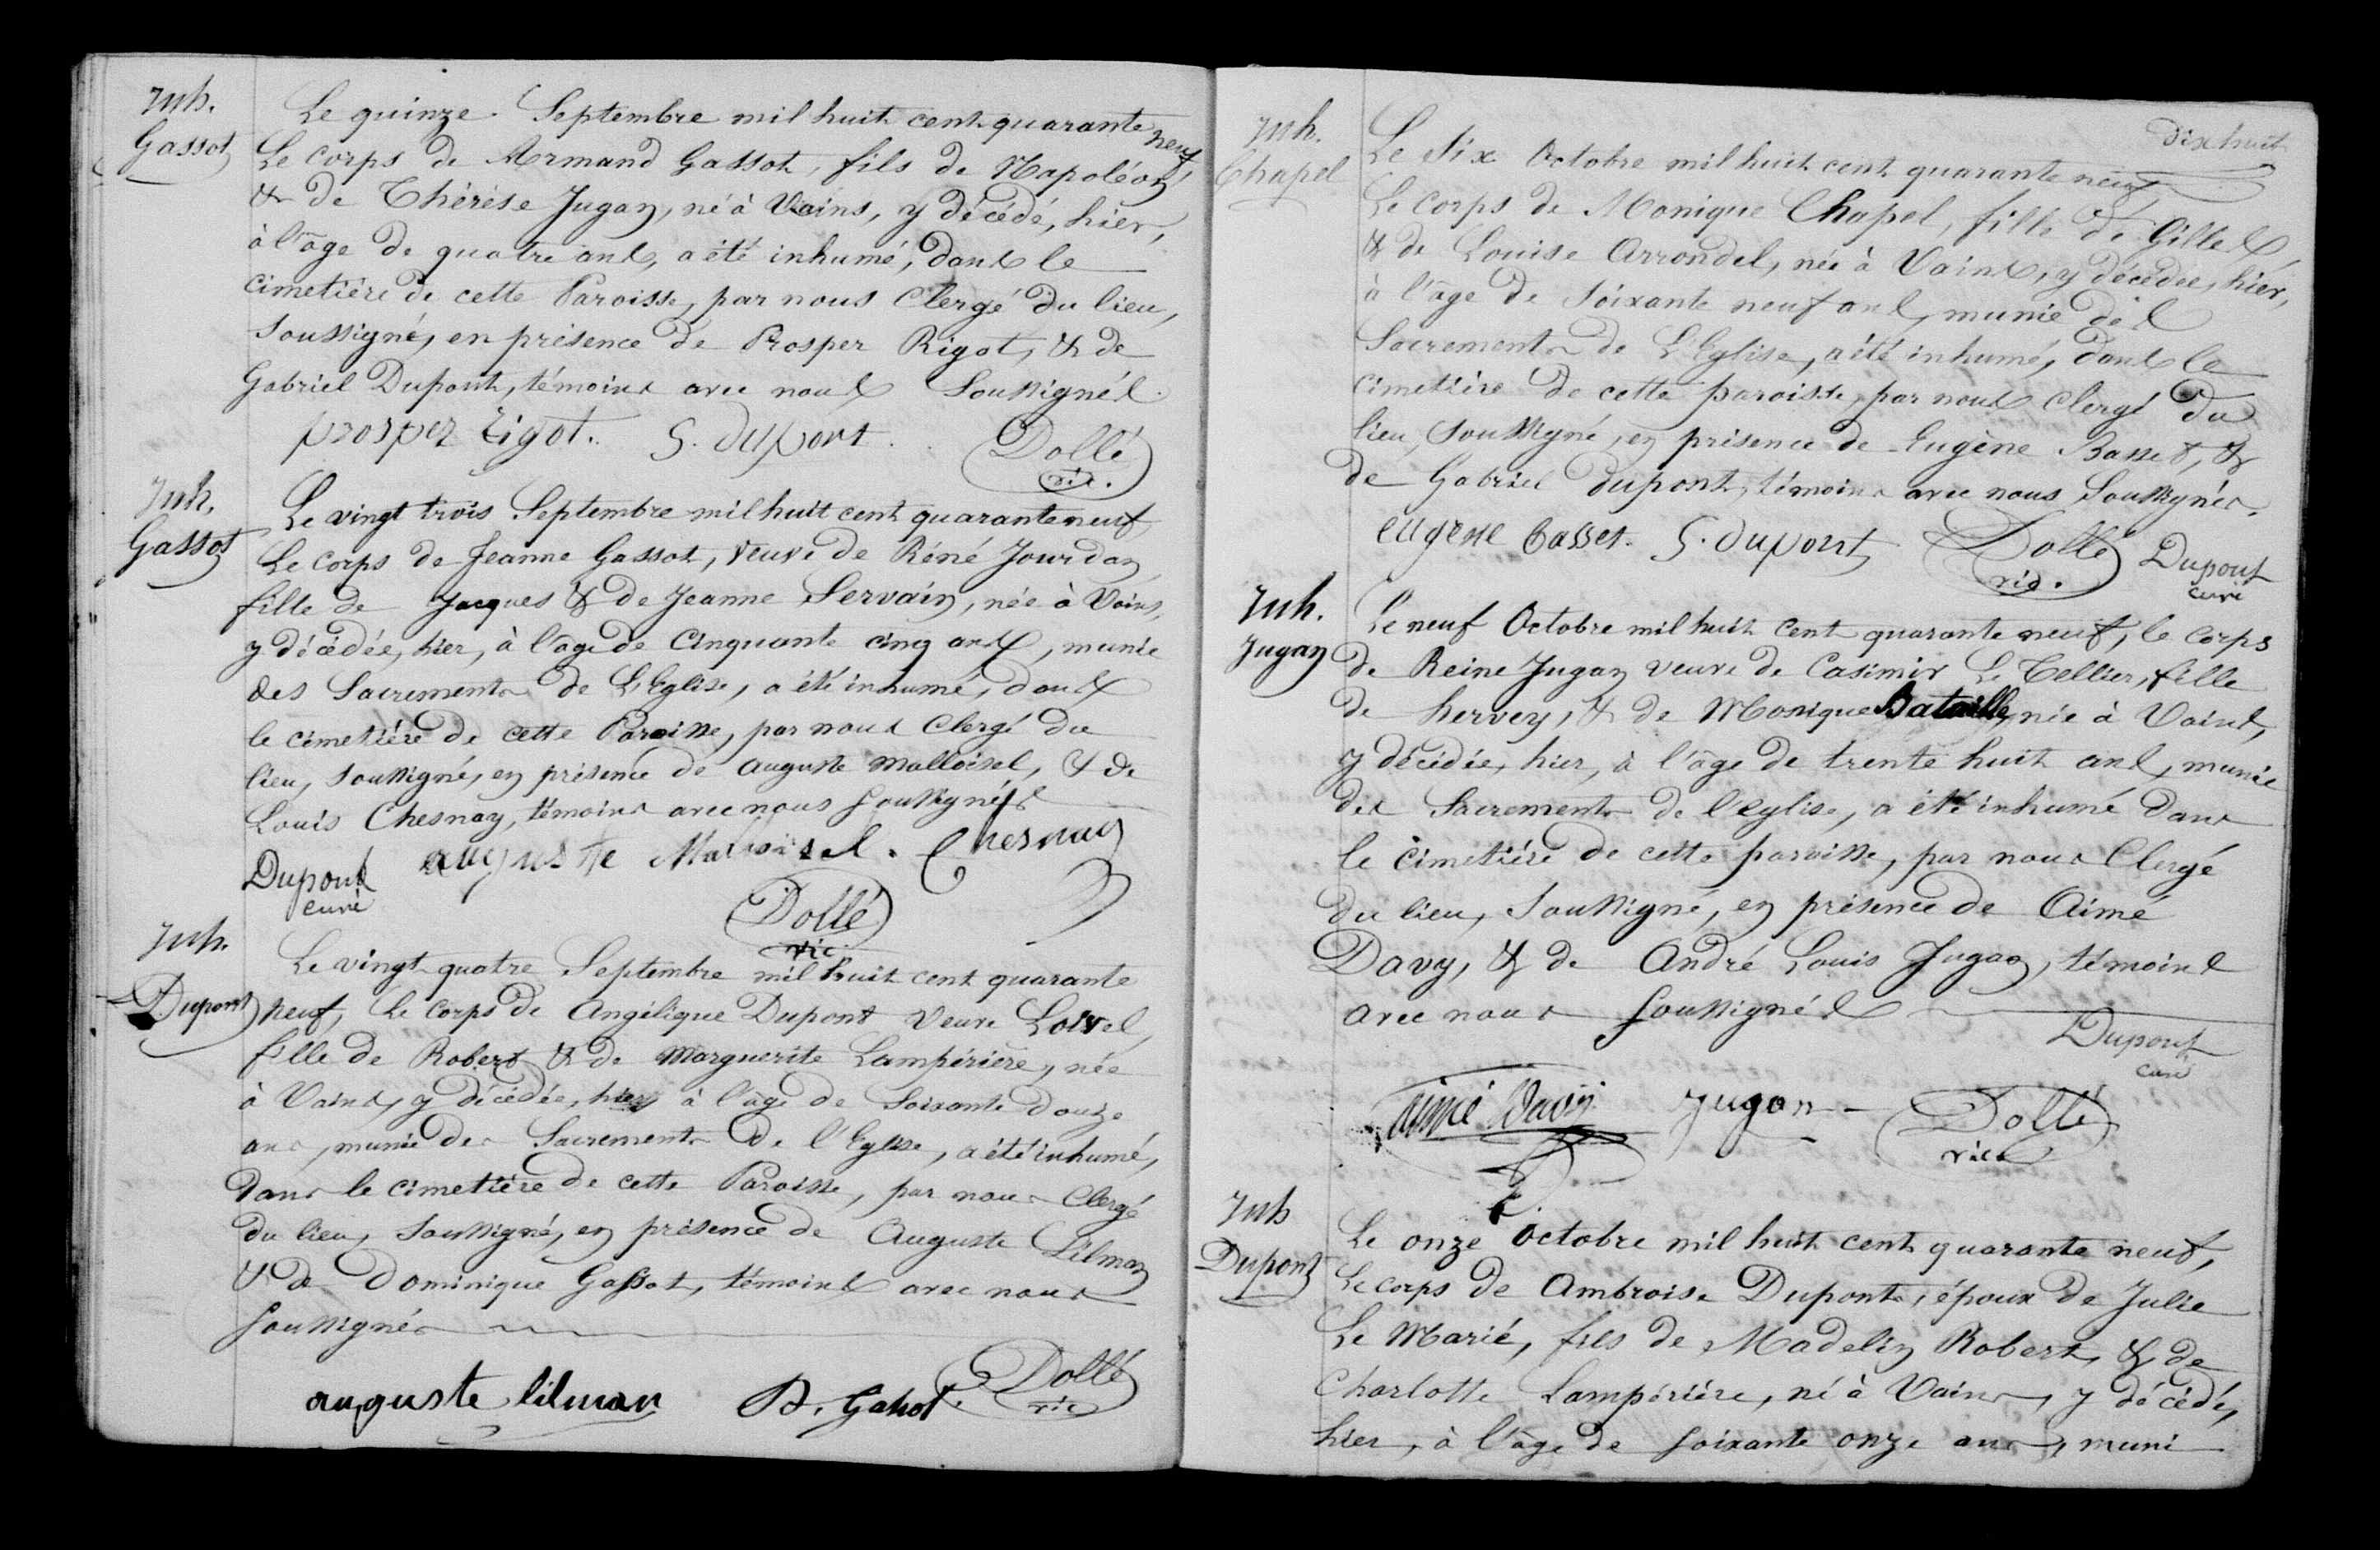 Inh.
Gassot
Le quinze Septembre mil huit cent quarante neuf,
Le corps de Armand Gassot, fils de Napoléon,
& de Thérèse Jugan, né à Vains, y décédé, hier,
à l'âge de quatre ans, a été inhumé, dans le
cimetière de cette Paroisse, par nous Clergé du lieu,
Soussigné, en présence de Prosper Rigot, & de
Gabriel Dupont, témoins avec nous Soussignés.
prosper rigot. G. dupont. Dollé
vic.
Inh.
Gassot
Le vingt trois Septembre mil huit cent quarante neuf,
Le corps de Jeanne Gassot, veuve de Réné Jourdan
fille de Jacques & de Jeanne Servain, née à Vains,
y décédée, hier, à l'âge de Cinquante cinq ans, munie
des Sacrements de L'Eglise, a été inhumé, dans
le cimetière de cette Paroisse, par nous Clergé du
lieu, soussigné, en présence de auguste Malloisel, & de
Louis Chesnay, témoins avec nous soussignés
Dupont auguste Malloisel. Chesnay
curé
Dollé
vic.
Inh.
Dupont
Le vingt quatre Septembre mil huit cent quarante
neuf, Le corps de Angélique Dupont Veuve Loisel,
fille de Robert & de Marguerite Lampérière, née
à Vains, y décédée, hier, à l'âge de Soixante douze
ans, munie des Sacrements de l'Eglise, a été inhumé,
Dans le cimetière de cette Paroisse, par nous Clergé
du lieu, Soussigné, en présence de Auguste Lilman
& de Dominique Gassot, témoins avec nous
soussignés
auguste lilman D. Gassot. Dollé
vic
dix huit
Inh.
Chapel
Le Six Octobre mil huit cent quarante neuf
Le Corps de Monique Chapel, fille de Gilles,
& de Louise Arrondel, née à Vains, y décédée, hier,
à l'âge de Soixante neuf ans, munie des
Sacrements de L'Eglise, a été inhumé, dans le
cimetière de cette paroisse, par nous Clergé du
lieu, Soussigné, en présence de Eugène Basset, &
de Gabriel dupont, témoins avec nous Soussignés.
eugene basset. G. dupont Dollé Dupont
vic. curé
Inh.
Jugan
Le neuf Octobre mil huit cent quarante neuf, le corps
de Reine Jugan veuve de Casimir Le Tellier, fille
de hervey, & de Monique Bataille, née à Vains,
y décédée, hier, à l'âge de trente huit ans, munie
des Sacrements de l'eglise, a été inhumé Dans
le cimetière de cette paroisse, par nous Clergé
du lieu, Soussigné, en présence de Aimé
Davy, & de André Louis Jugan, témoins
avec nous soussignés
Dupont
curé
aimé Davy Jugan Dollé
vic
Inh
Dupont
Le onze Octobre mil huit cent quarante neuf,
Le corps de Ambroise Dupont, époux de Julie
Le Marié, fils de Madelin Robert, & de
Charlotte Lampérière, né à Vains, y décédé,
hier, à l'âge de soixante onze ans, muni